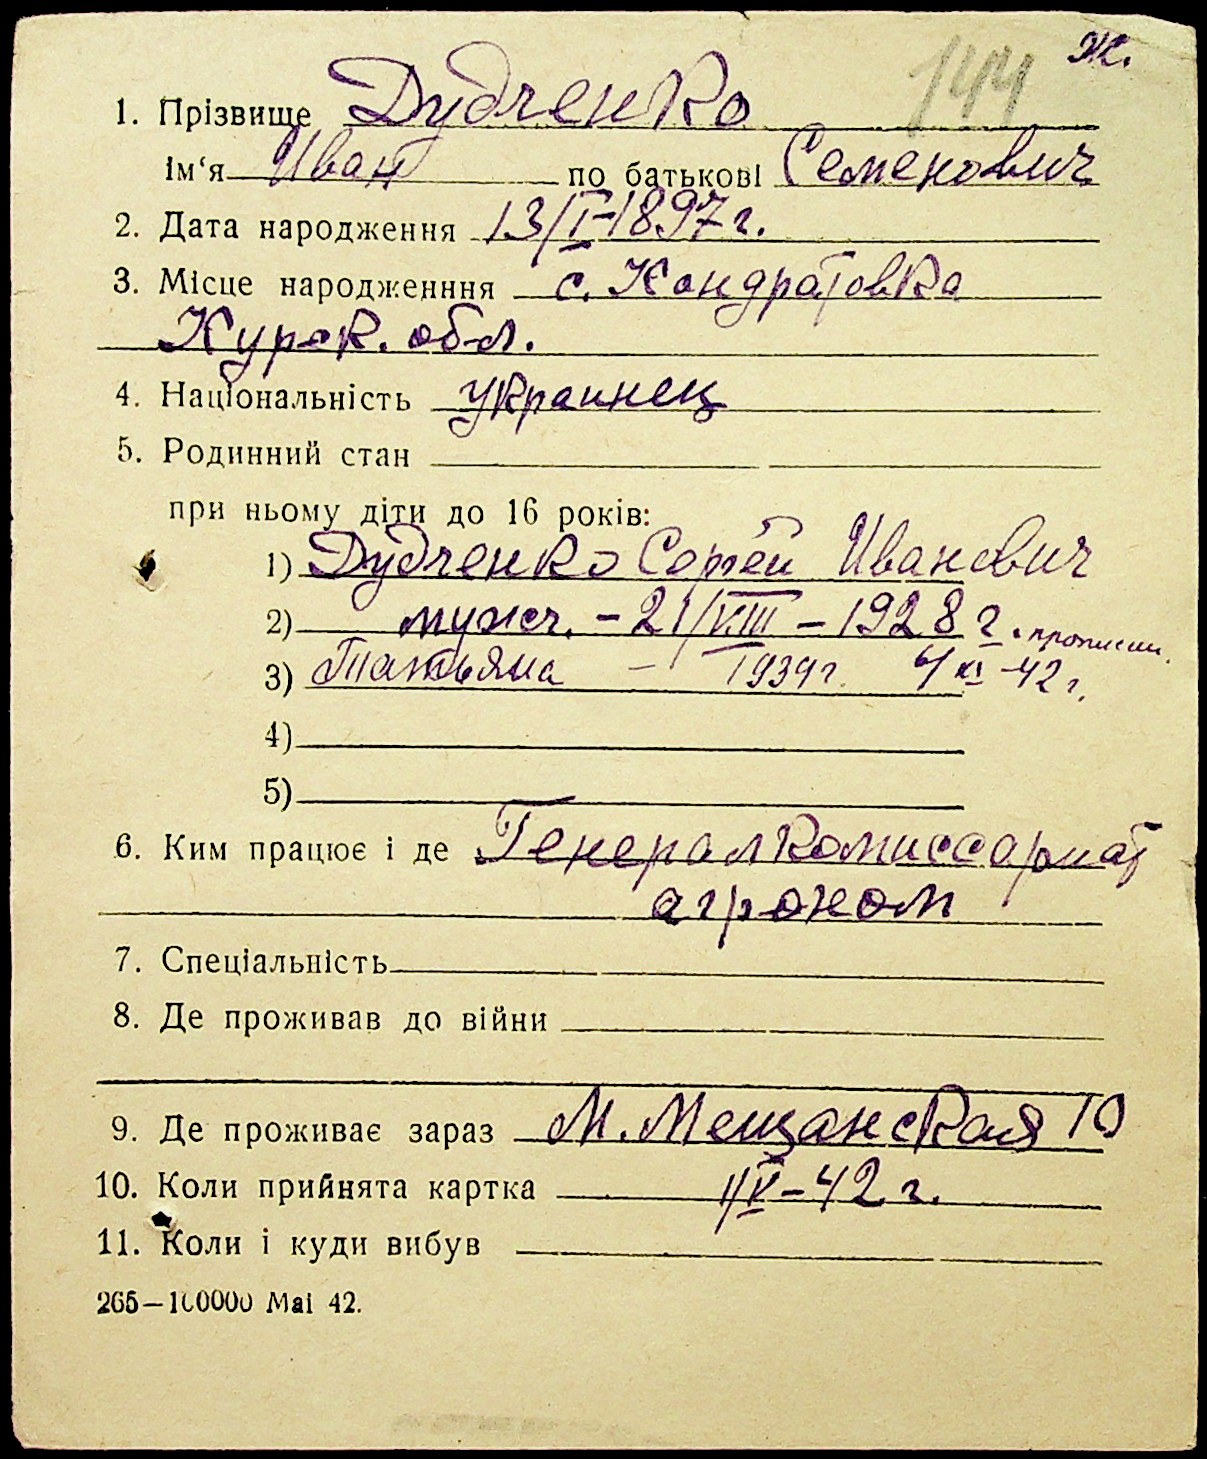 144 Ж.
1. Прізвище Дудченко
Ім‘я Иван по батькові Семенович
2. Дата народження 13/I-1897 г.
3. Місце народженння с. Кондратовка
Курск. обл.
4. Національність украинец
5. Родинний стан
при ньому діти до 16 років:
1) Дудченко Сергей Иванович
2) мужч. - 21/VIII - 1928 г. прописан
3) Татьяна - 1939 г. 4/XI-42 г.
4)
5)
6. Ким працює і де Генералкомиссариат
агроном
7. Спеціальність
8. Де проживав до війни
9. Де проживає зараз М. Мещанская 10
10. Коли прийнята картка 1/V-42 г.
11. Коли і куди вибув
265—100000 Mai 42.